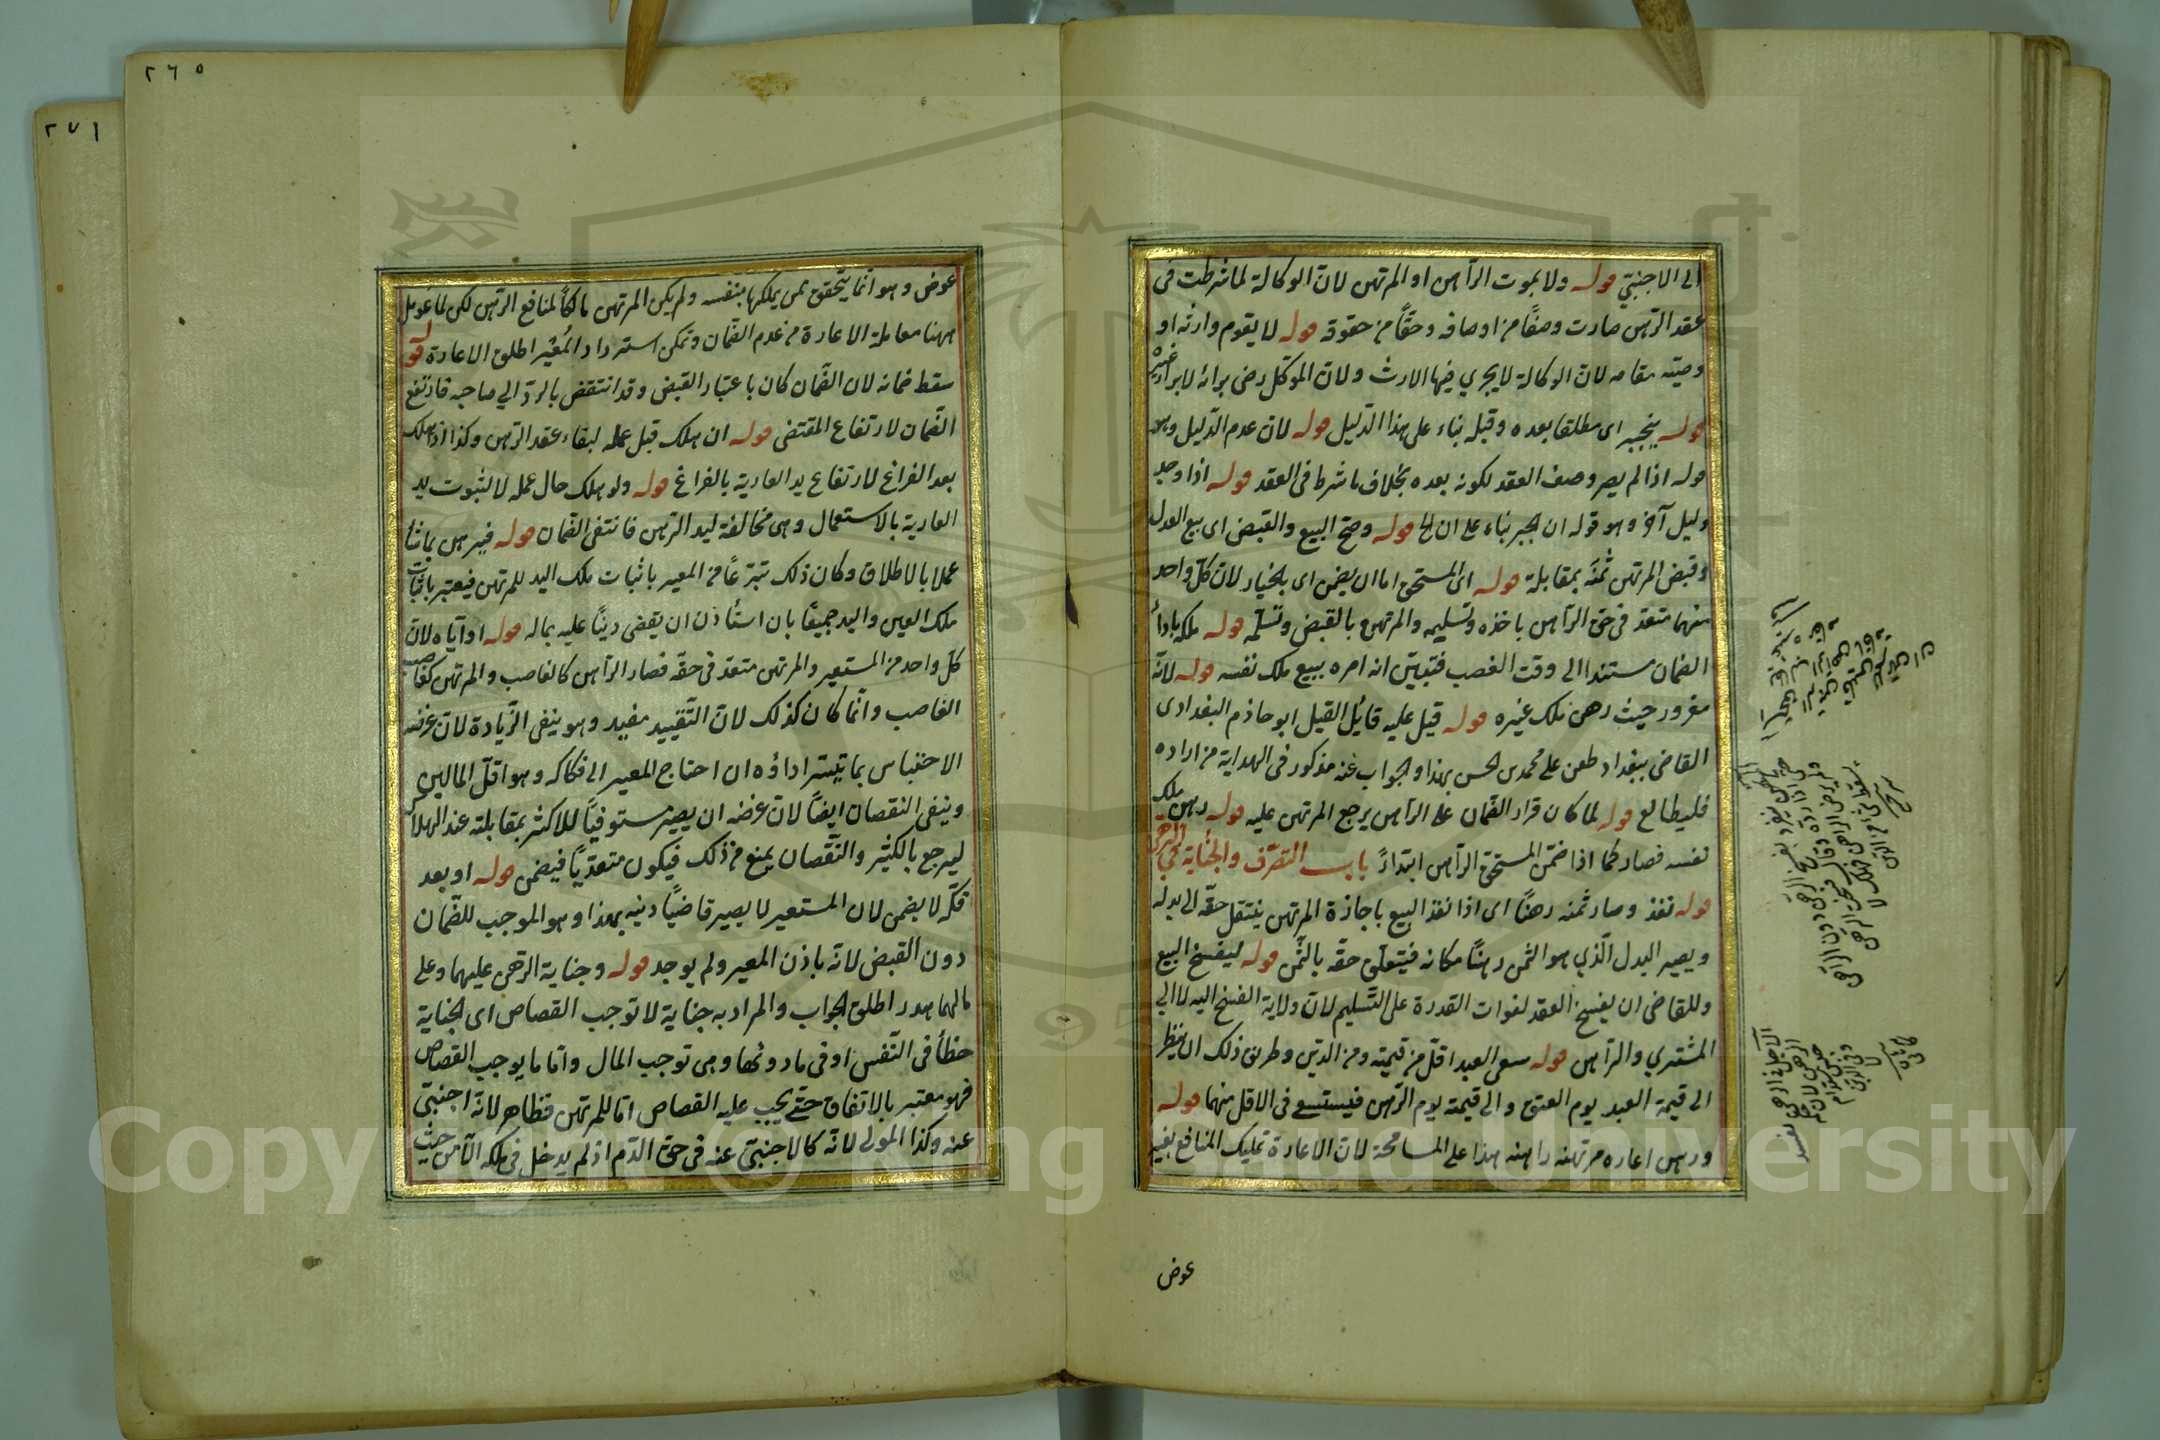 الى الاجنبي قوله ولا بموت الراهن او المرتهن لان الوكالة لما شرطت في
عقد الرهن صارت وصفًا من اوصافه وحقًا من حقوقه قوله لا يقوم وارثه او
وصيّه مقامه لان الوكالة لا يجري فيها الارث ولان الموكل رضي برائه لا براي غيره
قوله يجبر اى مطلقا بعده وقبله بناء على هذا الدليل قوله لان عدم الدليل وهو
قوله اذا لم يصر وصف العقد لكونه بعده بخلاف ما شرط في العقد قوله اذا وجد
دليل آخر وهو قوله ان الجبر بناء على ان الخ قوله وصح البيع والقبض اى بيع العدل
وقبض المرتهن ثمنَه بمقابلة قوله اى المستحق اما ان يضمن اى بالخيار لان كلّ واحد
منهما متعد في حق الراهن باخذه وتسليمه والمرتهن بالقبض وتسلّمه قوله ملكه باداء
الضمان مستندا الى وقت الغصب فتبيّن انه امره ببيع ملك نفسه قوله لانه
مغرور حيث رهن ملك غيره قوله قيل عليه قائل القيل ابو حازم البغدادى
القاضى ببغداد طعن على محمد بن الحسن بهذا والجواب عنه مذكور في الهداية من اراده
فليطالع قوله لما كان قرار الضمان على الراهن يرجع المرتهن عليه قوله رهن ملك
نفسه فصار كما اذا ضمّن المستحق الراهن ابتداءً باب التصرف والجناية في الرهن
قوله نفذ وصار ثمنه رهنًا اى اذا نفذ البيع باجازة المرتهن ينتقل حقه الى بدله
ويصير البدل الّذي هو الثمن رهنًا مكانه فيتعلّق حقه بالثمن قوله ليفسخ البيع
وللقاضى ان يفسخ العقد لفوات القدرة على التسليم لان ولاية الفسخ اليه لا الى
المشتري والراهن قوله سعى العبد اقلّ من قيمته ومن الدين وطريق ذلك ان ينظر
الى قيمة العبد يوم العتق والى قيمته يوم الرهن فيستسعى فى الاقل منهما قوله
ورهن اعاره مرتهنه راهنه هذا على المسامحة لان الاعارة تمليك المنافع بغير
عوض
٢٦٥
٢٧١
عوض وهو انّما يتحقق ممن يملكها بنفسه ولم يكن المرتهن مالكًا لمنافع الرهن لكن لما عُومل
ههنا معاملة الاعارة من عدم الضمان وتمكن استرداد المُعير اطلق الاعارة قوله
سقط ضمانه لان الضّمان كان باعتبار القبض وقد انتقض بالرد الى صاحبه فارتفع
الضّمان لارتفاع المقتضى قوله ان هلك قبل عمله لبقاء عقد الرهن وكذا اذا هلك
بعد الفراغ لارتفاع يد العارية بالفراغ قوله ولو هلك حال عمله لا لثبوت يد
العارية بالاستعمال وهى مخالفة ليد الرهن فانتفى الضمان قوله فيرهن بما شاء
عملا بالاطلاق وكان ذلك تبرّعًا من المعير باثبات ملك اليد للمرتهن فيعتبر باثبات
ملك العين واليد جميعًا بان استأذن ان يقضى دينًا عليه بماله قوله او آياه لان
كلّ واحد من المستعير والمرتهن متعد في حقه فصار الراهن كالغاصب والمرتهن كغاصب
الغاصب وانّما كان كذلك لان التّقييد مفيد وهو ينفى الزّيادة لان غرضه
الاحتباس بما تيسّر اداؤه ان احتاج المعير الى فكاكه وهو اقلّ المالين
وينفى النقصان ايضًا لان غرضه ان يصير مستوفيًا للاكثر بمقابلته عند الهلاك
ليرجع بالكثير والنّقصان يمنع من ذلك فيكون متعدّيًا فيضمن قوله او بعد
فكّه لا يضمن لان المستعير لا يصير قاضيًا دينه بهذا وهو الموجب للضّمان
دون القبض لانّه باذن المعير ولم يوجد قوله وجناية الرهن عليهما وعلى
مالهما هدر اطلق الجواب والمراد به جناية لا توجب القصاص اى الجناية
خطأ فى النّفس او فى ما دونها وهى توجب المال وامّا ما يوجب القصاص
فهو معتبر بالاتفاق حتّى يجب عليه القصاص امّا للمرتهن فظاهر لانه اجنبىّ
عنه وكذا المولى لانّه كالاجنبىّ عنه فى حق الدّم اذ لم يدخل فى ملكه الّا من حيث
Copyright © King Saud University